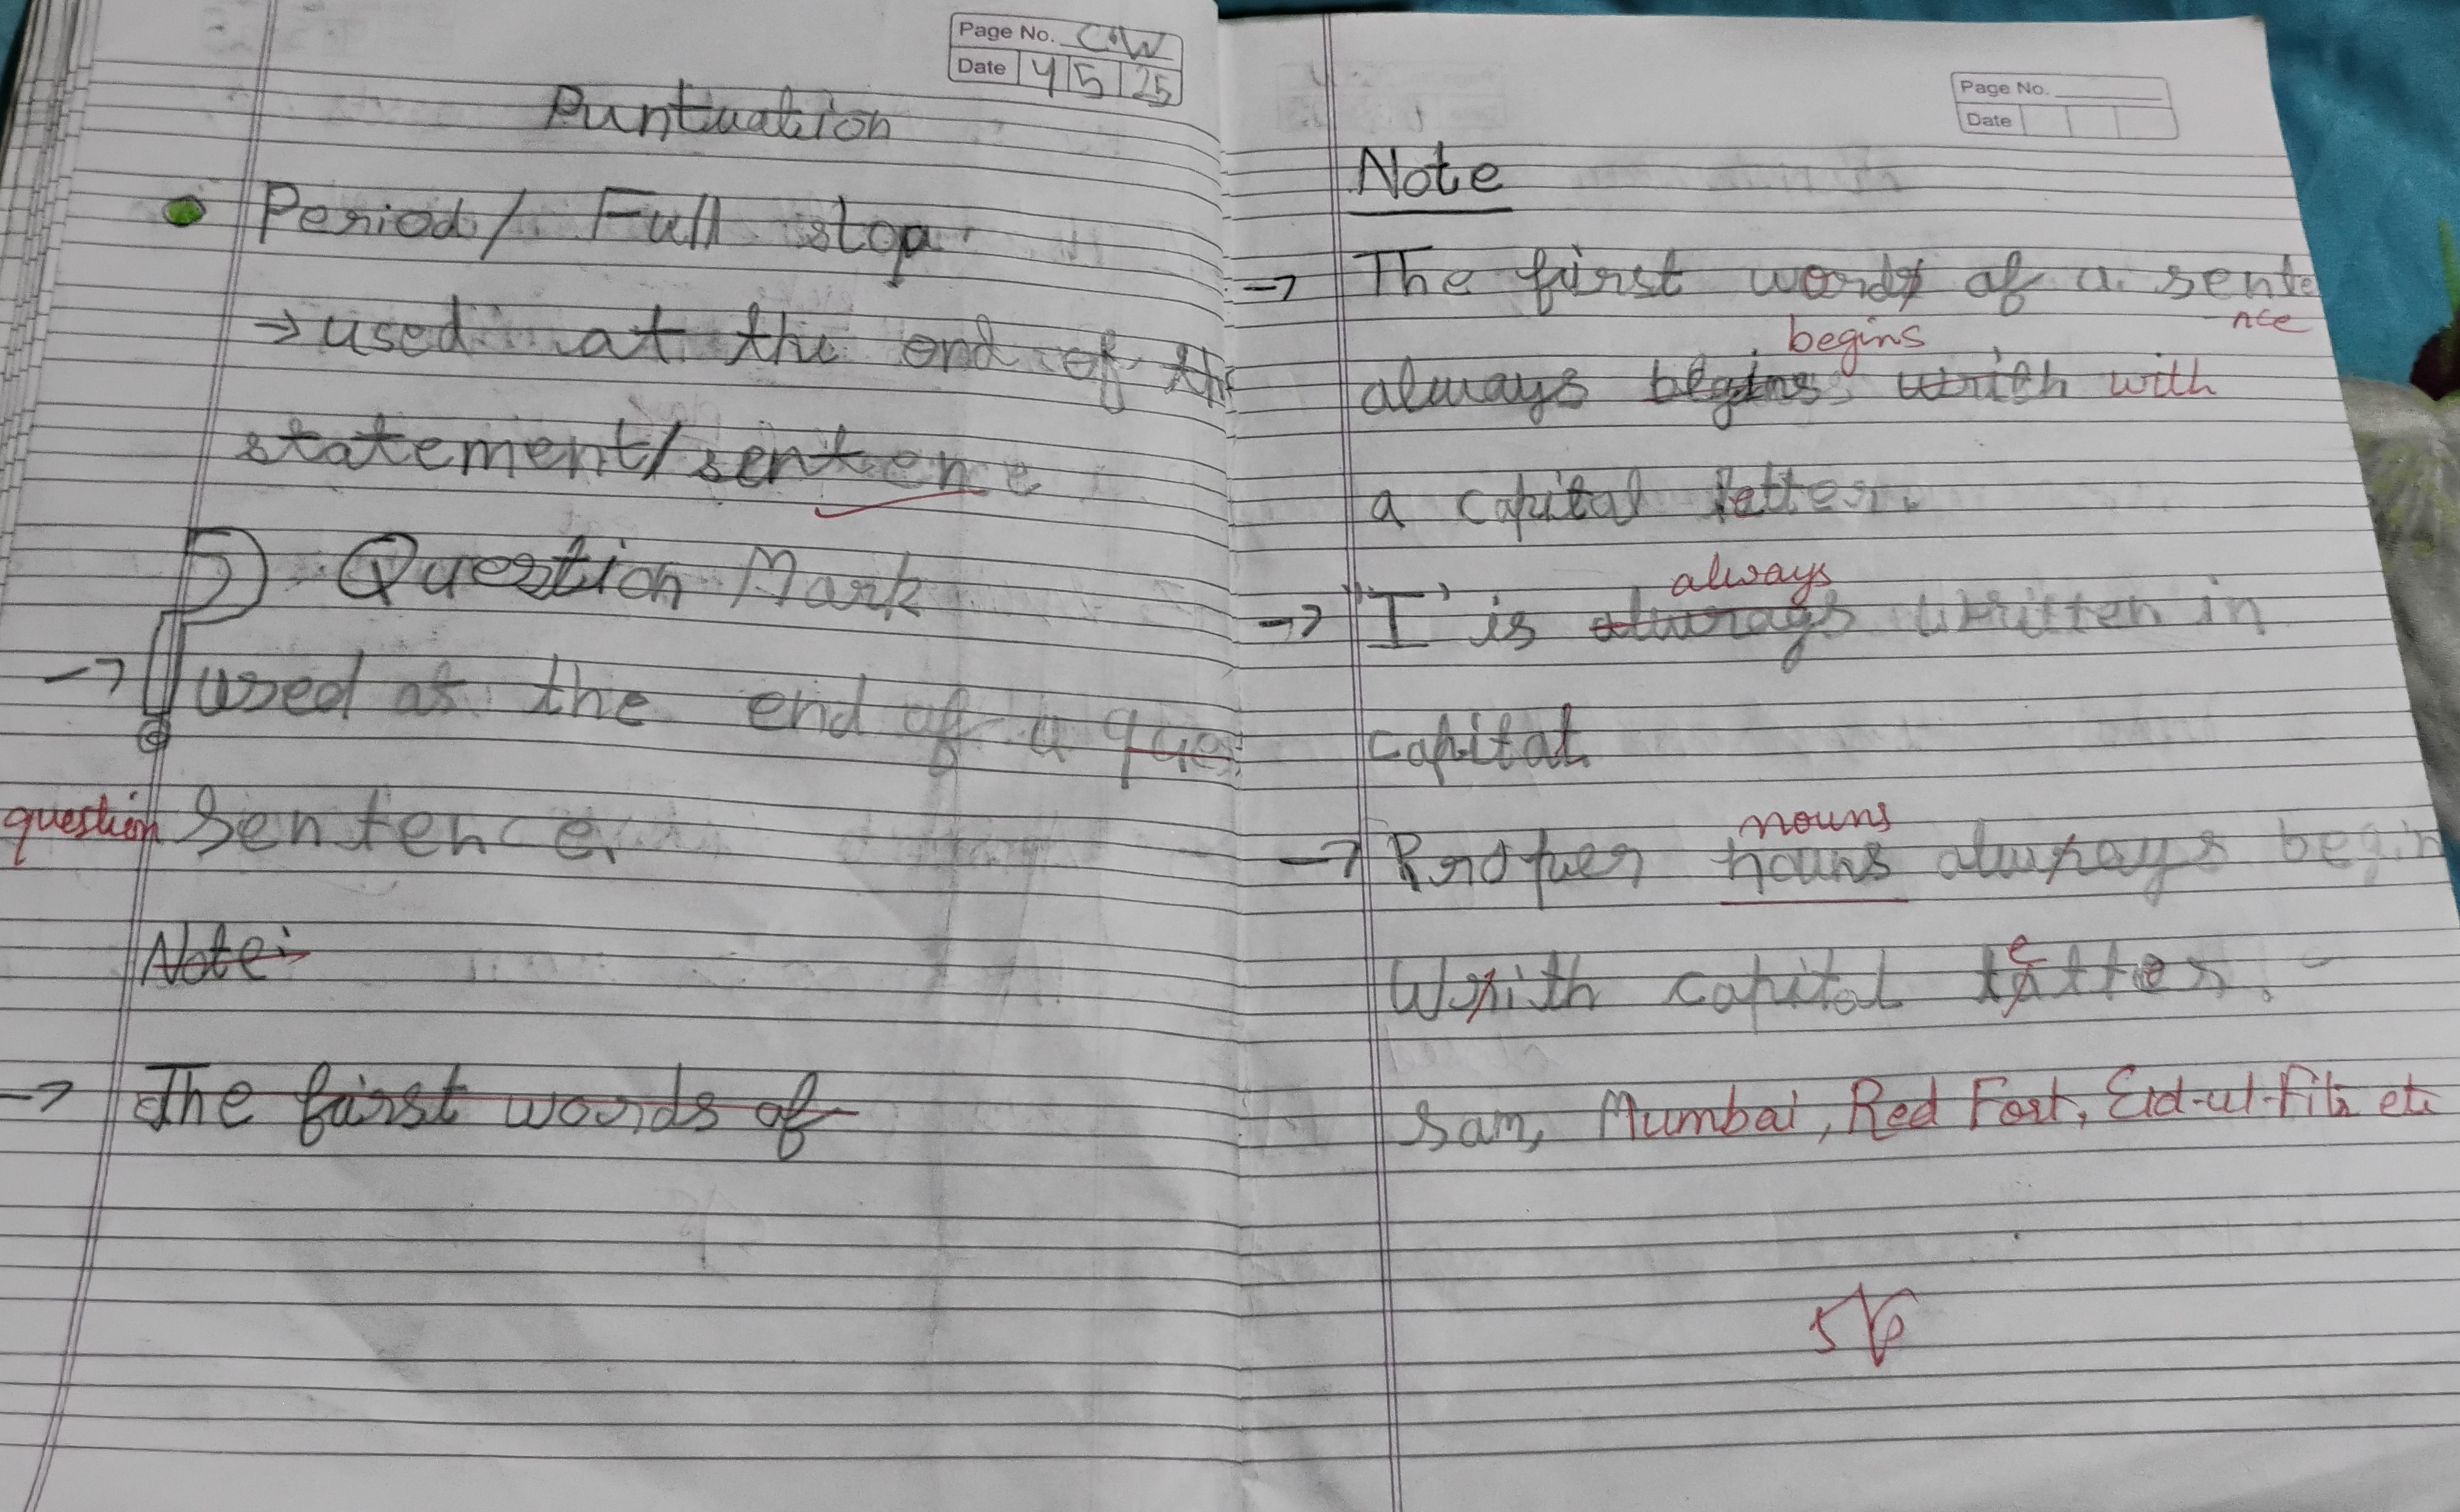 Page No. C.W
Date 4 5 25
Puntuation
Period / Full stop
→ used at the end of th
statement/sentence
? Question Mark
→ used at the end of a que
question sentence.
Note:-
→ The first words of
Page No.
Date
Note
→ The first words of a sente
nce
begins
always begins writh with
a capital letter.
always
→ "I" is alwrays written in
capital
nouns
→ Proper nouns alwrays begin
Wrrith capital letter.
e
Sam, Mumbai, Red Fort, Eid-ul-Fitr etc